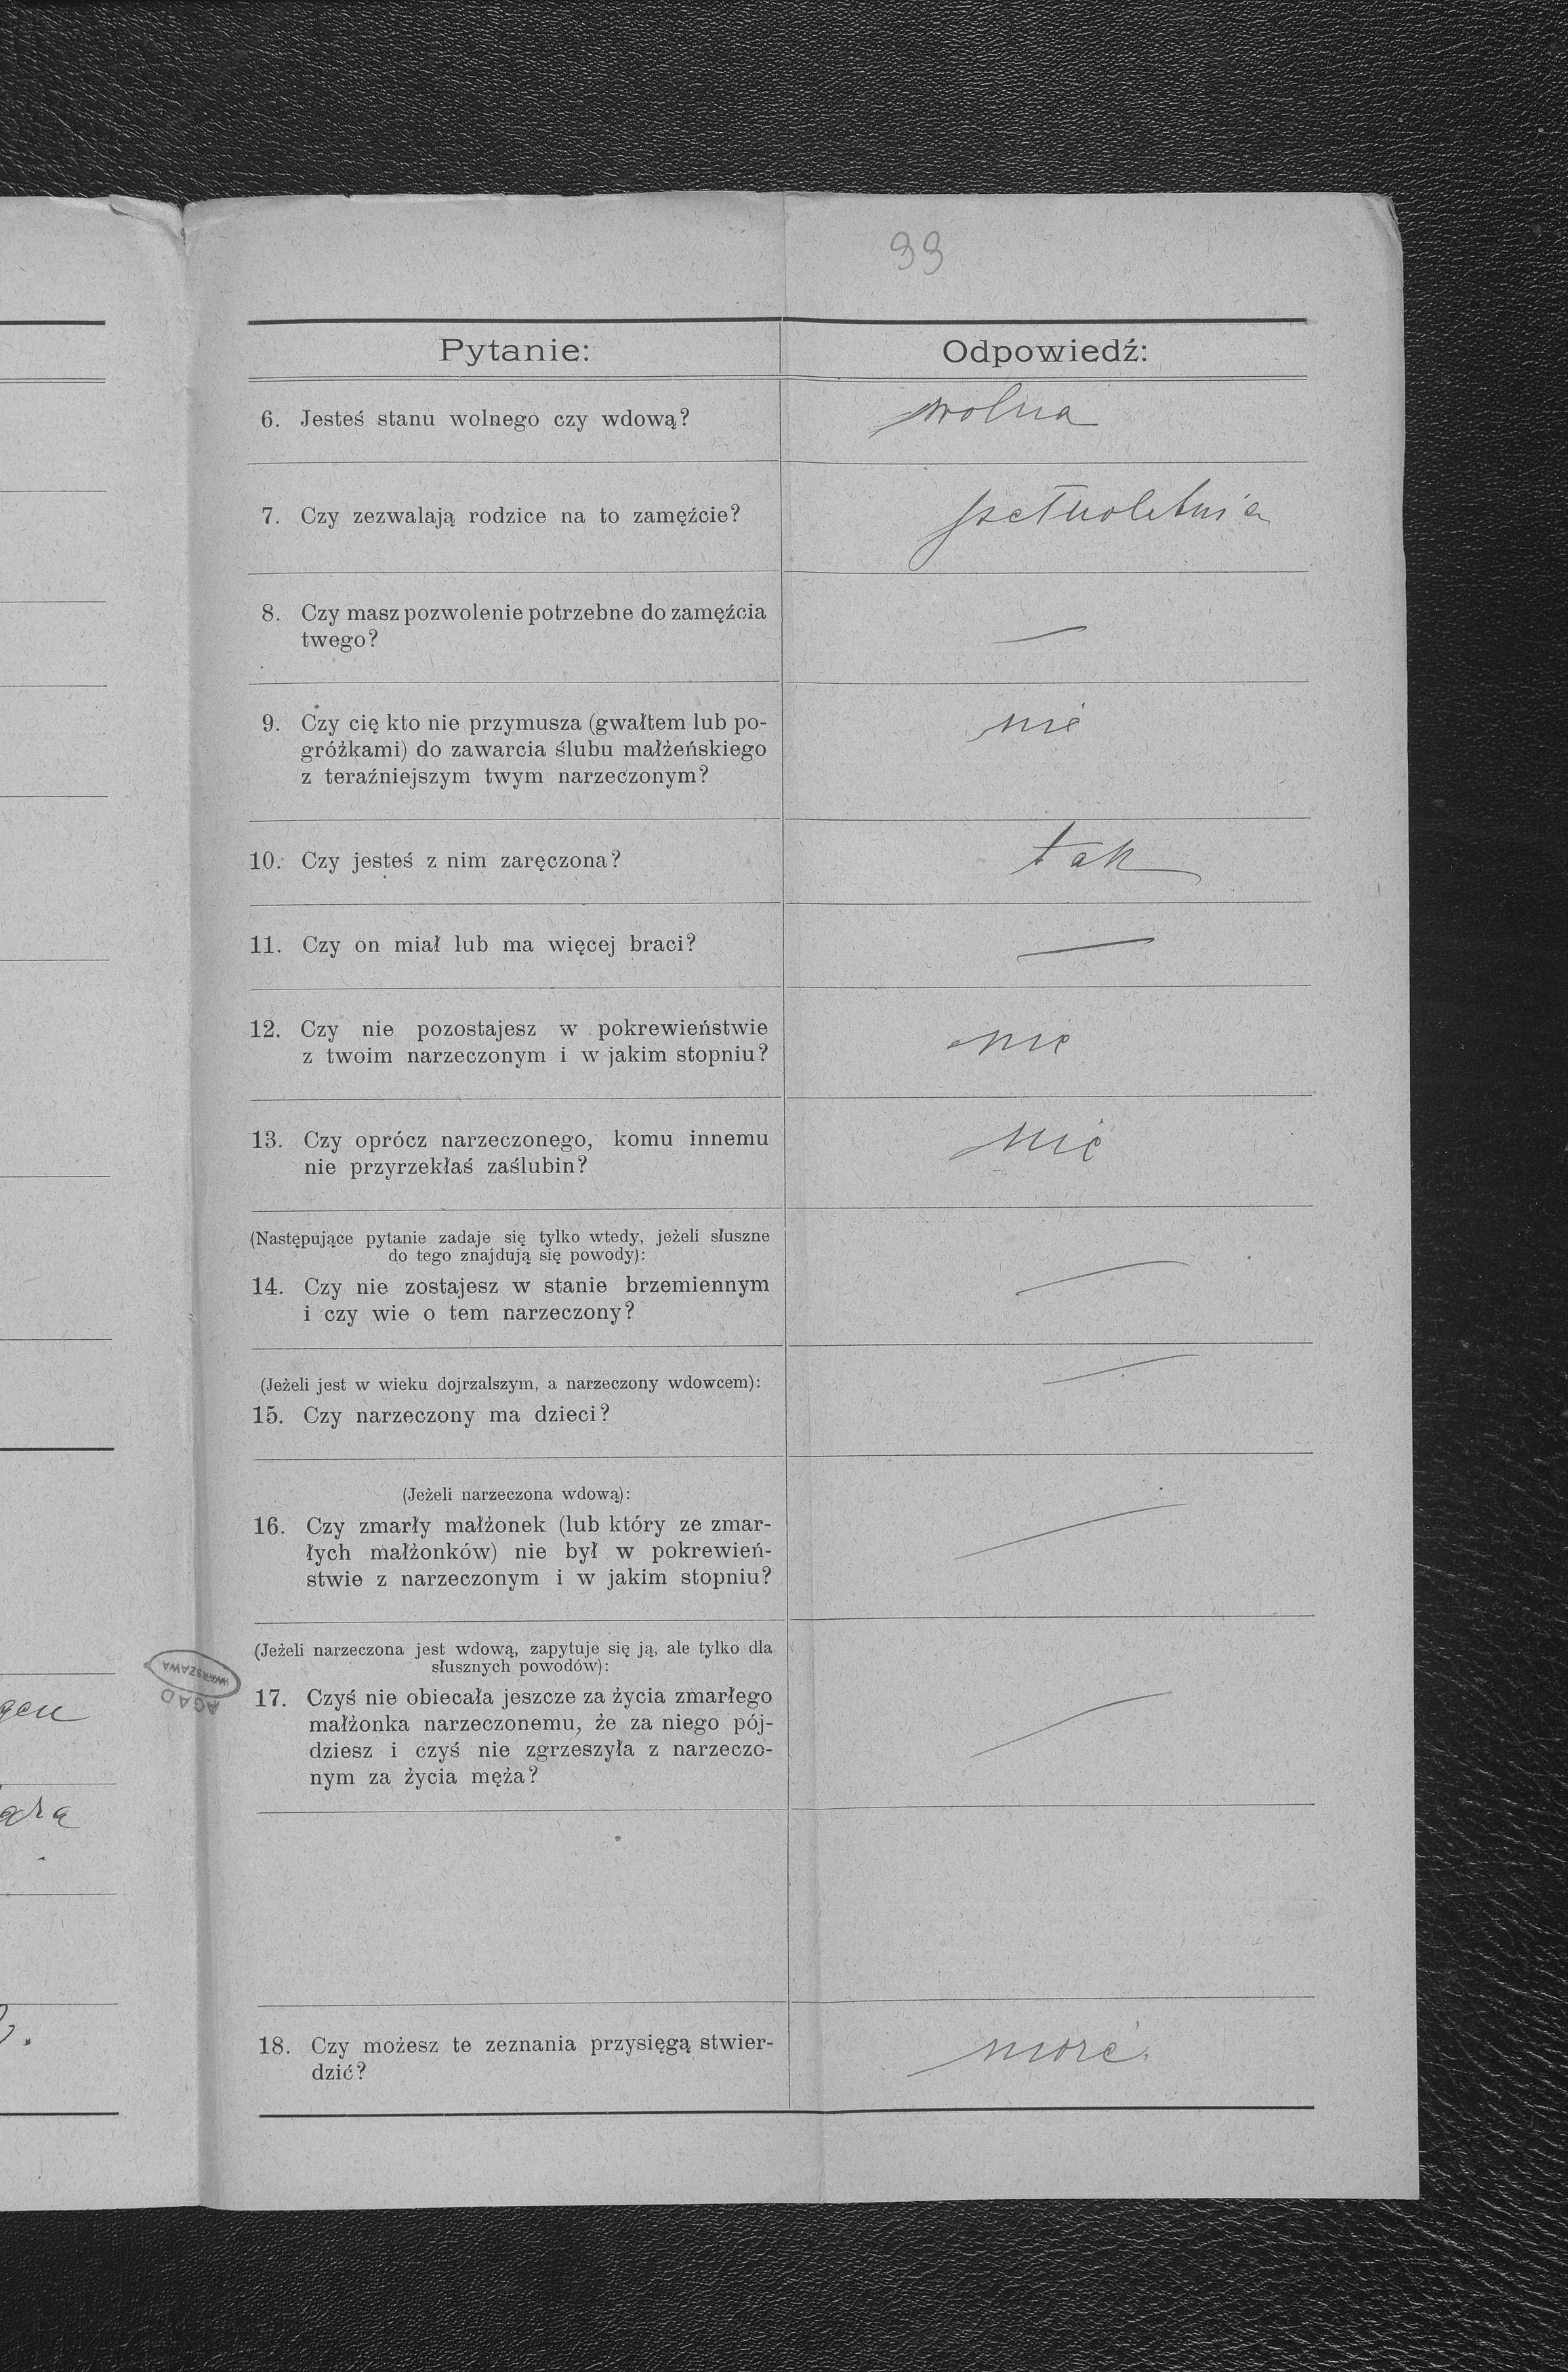 99
Pytanie:
Odpowiedź:
6. Jesteś stanu wolnego czy wdową?
wolna
7. Czy zezwalają rodzice na to zamęźcie?
pełnoletnia
8. Czy masz pozwolenie potrzebne do zamęźcia
twego?
—
9. Czy cię kto nie przymusza (gwałtem lub po-
gróżkami) do zawarcia ślubu małżeńskiego
z teraźniejszym twym narzeczonym?
nie
10. Czy jesteś z nim zaręczona?
tak
11. Czy on miał lub ma więcej braci?
—
12. Czy nie pozostajesz w pokrewieństwie
z twoim narzeczonym i w jakim stopniu?
nie
13. Czy oprócz narzeczonego, komu innemu
nie przyrzekłaś zaślubin?
nie
(Następujące pytanie zadaje się tylko wtedy, jeżeli słuszne
do tego znajdują się powody):
14. Czy nie zostajesz w stanie brzemiennym
i czy wie o tem narzeczony?
—
(Jeżeli jest w wieku dojrzalszym, a narzeczony wdowcem):
15. Czy narzeczony ma dzieci?
—
(Jeżeli narzeczona wdową):
16. Czy zmarły małżonek (lub który ze zmar-
łych małżonków) nie był w pokrewień-
stwie z narzeczonym i w jakim stopniu?
—
(Jeżeli narzeczona jest wdową, zapytuje się ją, ale tylko dla
słusznych powodów):
17. Czyś nie obiecała jeszcze za życia zmarłego
małżonka narzeczonemu, że za niego pój-
dziesz i czyś nie zgrzeszyła z narzeczo-
nym za życia męża?
—
18. Czy możesz te zeznania przysięgą stwier-
dzić?
może.
WARSZAWA
AGAD